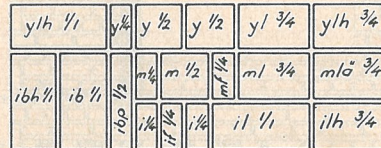 ylh 1/1 y 1/4 y 1/2 y 1/2 yl 3/4 ylh 3/4
ibh 1/1 ib 1/1 ibp 1/2 m 1/4 m 1/2 mf 1/4 ml 3/4 mlä 3/4
i 1/4 if 1/4 i 1/4 il 1/1 ilh 3/4